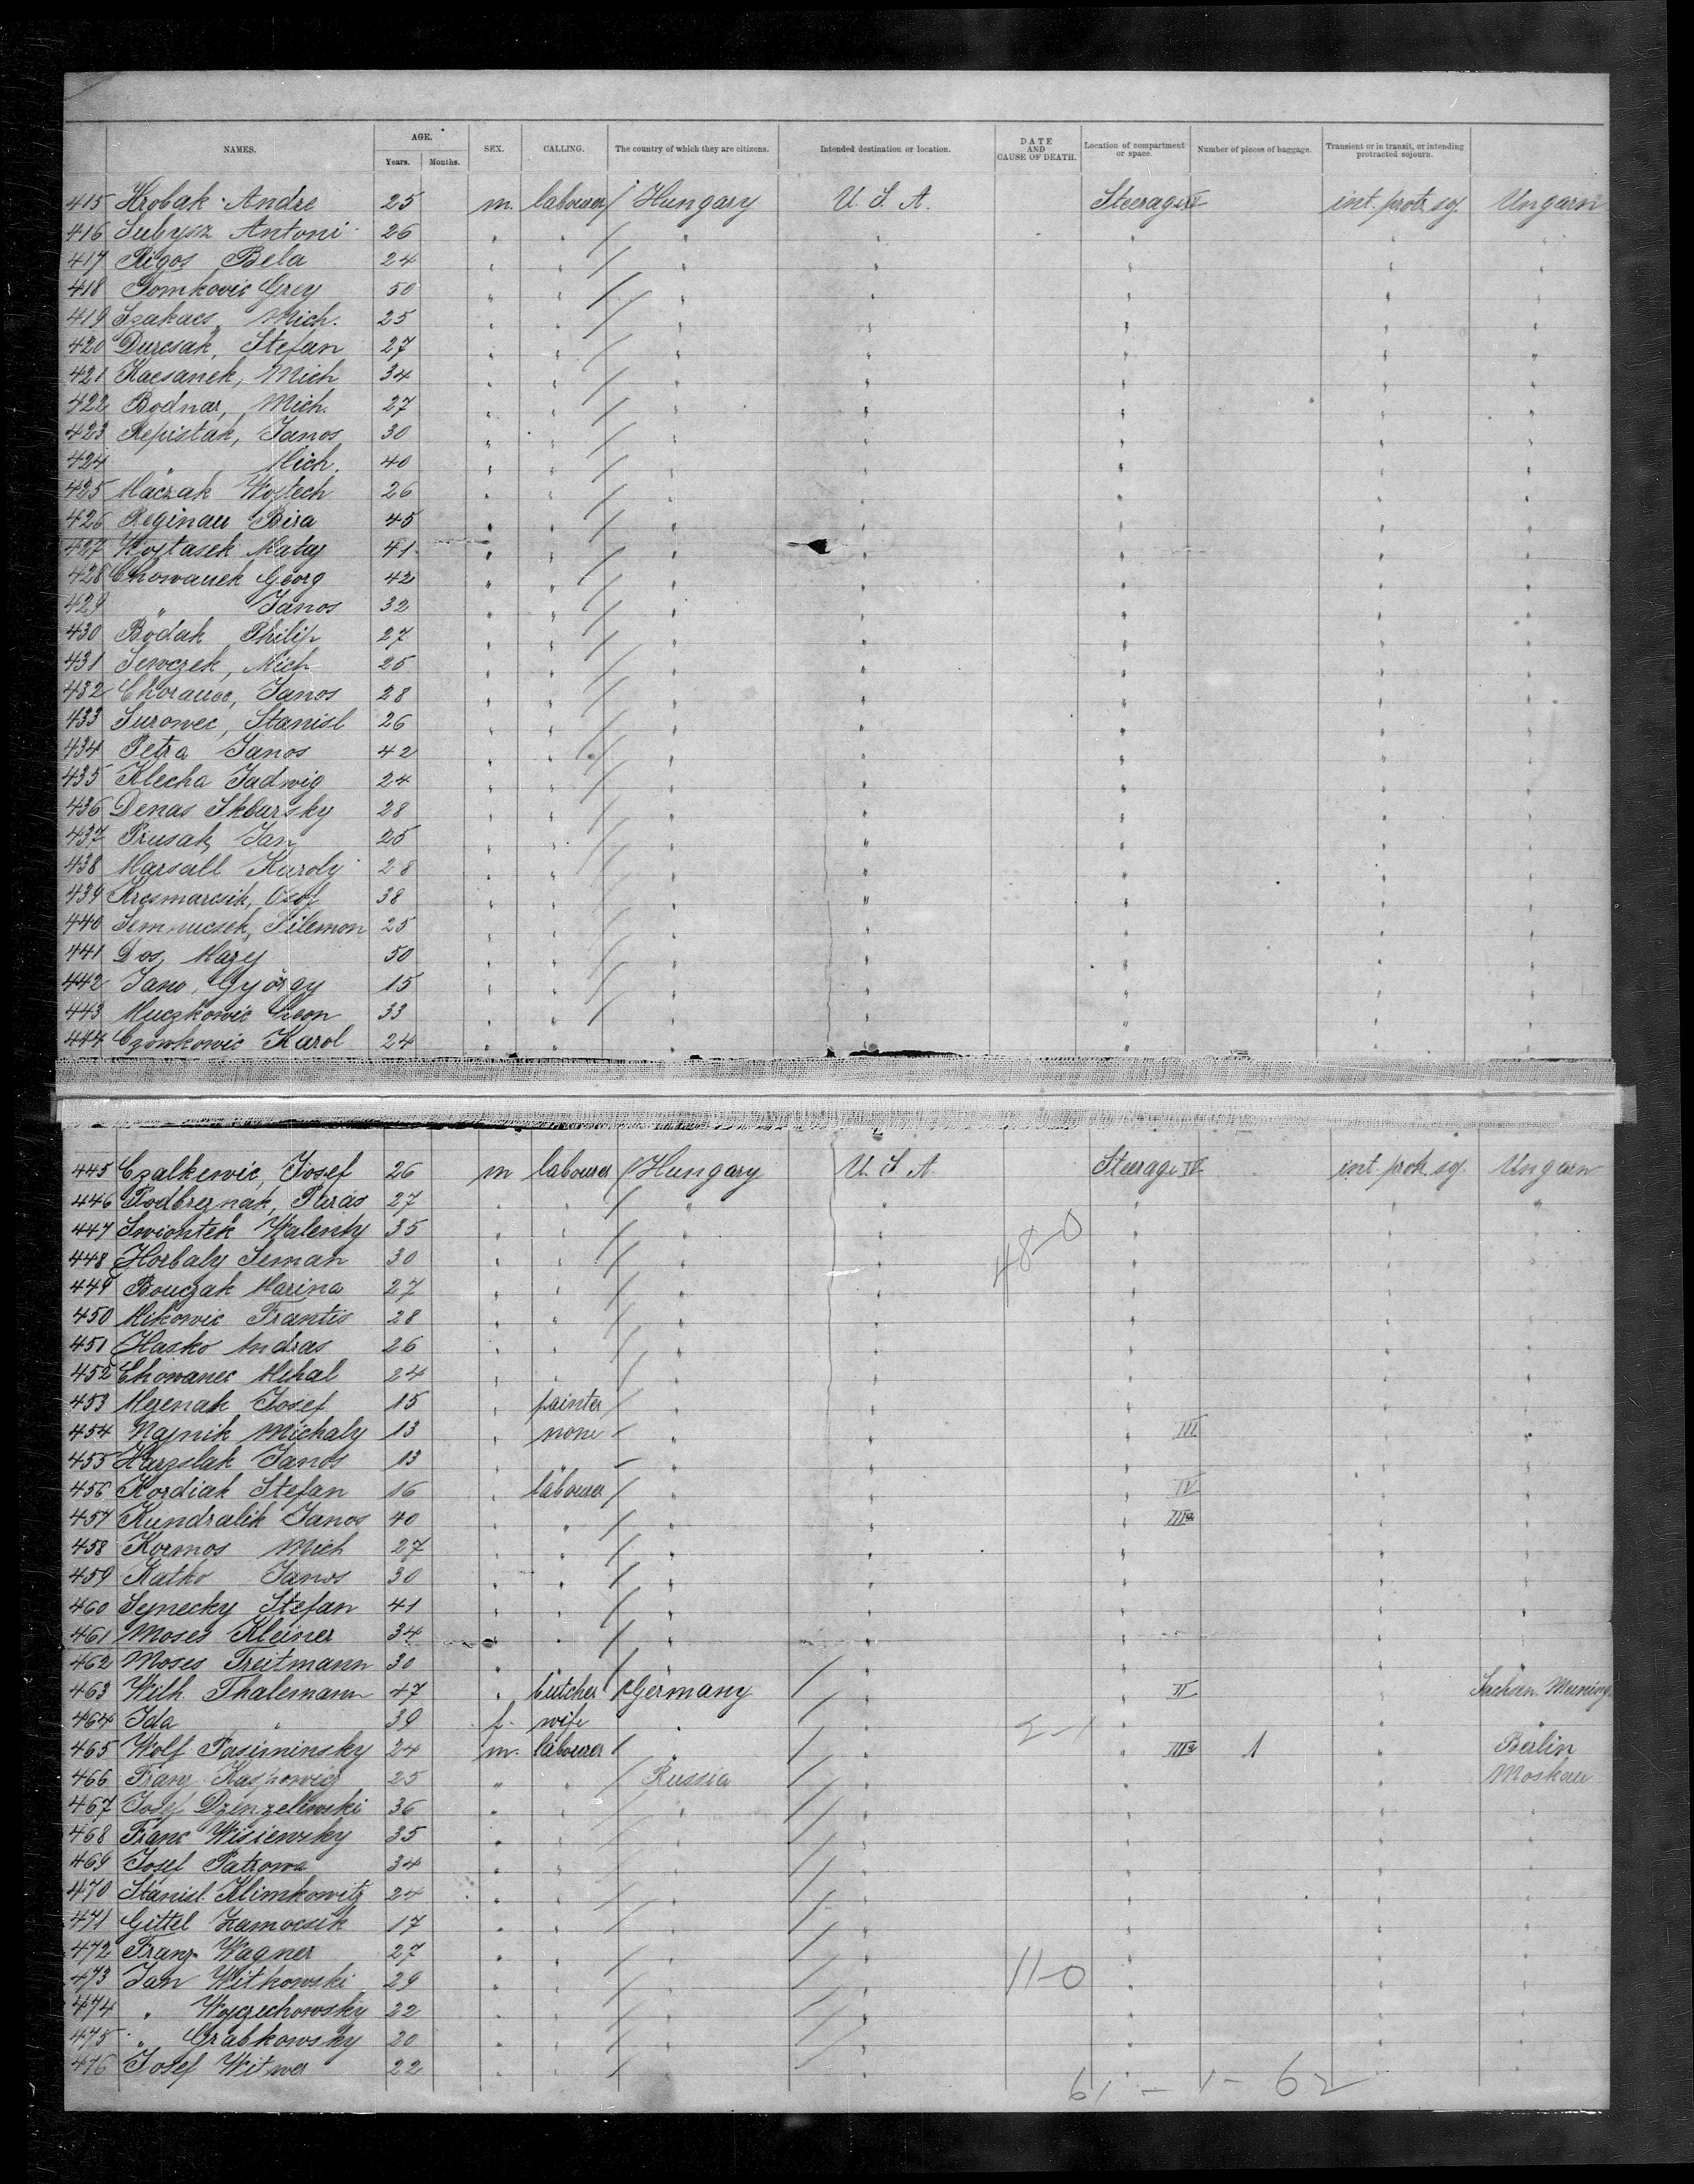 NAMES. AGE. Years. Months. SEX. CALLING. The country of which they are citizens. Intended destination or location. DATE AND CAUSE OF DEATH. Location of compartment or space. Number of pieces of baggage. Transient or in transit, or intending protracted sojourn.
415 Hrobak Andre 25 m. labourer Hungary U.S.A. Steerage IV int. prot. soj. Ungarn
416 Antoni 26 " " " " " " "
417 Rigos Bela 24 " " " " " " "
418 Tomkovic Grey 50 " " " " " " "
419 Szakacs Mich. 25 " " " " " " "
420 Durcsak, Stefan 27 " " " " " " "
421 Kacsanek, Mich 34 " " " " " " "
422 Bodnar, Mich. 27 " " " " " " "
423 Repistak, Janos 30 " " " " " " "
424 " Mich. 40 " " " " " " "
425 Maczak Wojtech 26 " " " " " " "
426 45 " " " " " " "
427 Wojtasek Mataj 41 " " " " " " "
428 Chowanek Georg 42 " " " " " " "
429 " Janos 32 " " " " " " "
430 Bodak Philip 27 " " " " " " "
431 Mich 25 " " " " " " "
432 Janos 28 " " " " " " "
433 Surowec, Stanisl 26 " " " " " " "
434 Petra Janos 42 " " " " " " "
435 Klecha Jadwig 24 " " " " " " "
436 Denas 28 " " " " " " "
437 Prusak, Jan 25 " " " " " " "
438 Marsall Karoly 28 " " " " " " "
439 38 " " " " " " "
440 Filemon 25 " " " " " " "
441 Dos, 50 " " " " " " "
442 Jano, György 15 " " " " " " "
443 Muczkowic Leon 33 " " " " " " "
444 Karol 24 " " " " " " "
445 Czalkewic, Josef 26 m labourer Hungary U.S.A. Steerage IV int. prot. soj. Ungarn
446 Paras 27 " " " " " " "
447 Swiontek Walenty 35 " " " " " " "
48-0
448 Horbaly Seman 30 " " " " " " "
449 Bouczak Marina 27 " " " " " " "
450 Mikowic Frantis 28 " " " " " " "
451 Hasko Andras 26 " " " " " " "
452 Chowanec Mihal 24 " " " " " " "
453 Josef 15 " painter " " " " "
454 Najnik Michaly 13 " none " " " III " "
455 Janos 13 " " " " " " "
456 Kordiak Stefan 16 " labourer " " " IV " "
457 Kundralik Janos 40 " " " " " IIIa " "
458 Kormos Mich 27 " " " " " " "
459 Katko Janos 30 " " " " " " "
460 Stefan 41 " " " " " " "
461 Moses Kleiner 34 " " " " " " "
462 Moses Treitmann 30 " " " " " " "
463 Wilh. Thalemann 47 " butcher Germany " " II " Sachsen
464 Ida " 39 f. wife " " " " "
465 Wolf Pasiminsky 24 m. labourer " " " IIIa 1 " Berlin
466 Franz 25 " " Russia " " " Moskau
467 Josef Dzenzelewski 36 " " " " " " "
468 Franc 35 " " " " " " "
469 Josef Patrowa 34 " " " " " " "
470 Stanisl. Klimkowitz 24 " " " " " " "
471 Gittel 17 " " " " " " "
472 Franz Wagner 27 " " " " " " "
473 Jan Witkowski 29 " " " 11-0 " " "
474 " Wojczechowsky 22 " " " " " " "
475 " Grabkowsky 20 " " " " " " "
476 Josef Witwer 22 " " " " " " "
61 - 1 - 62